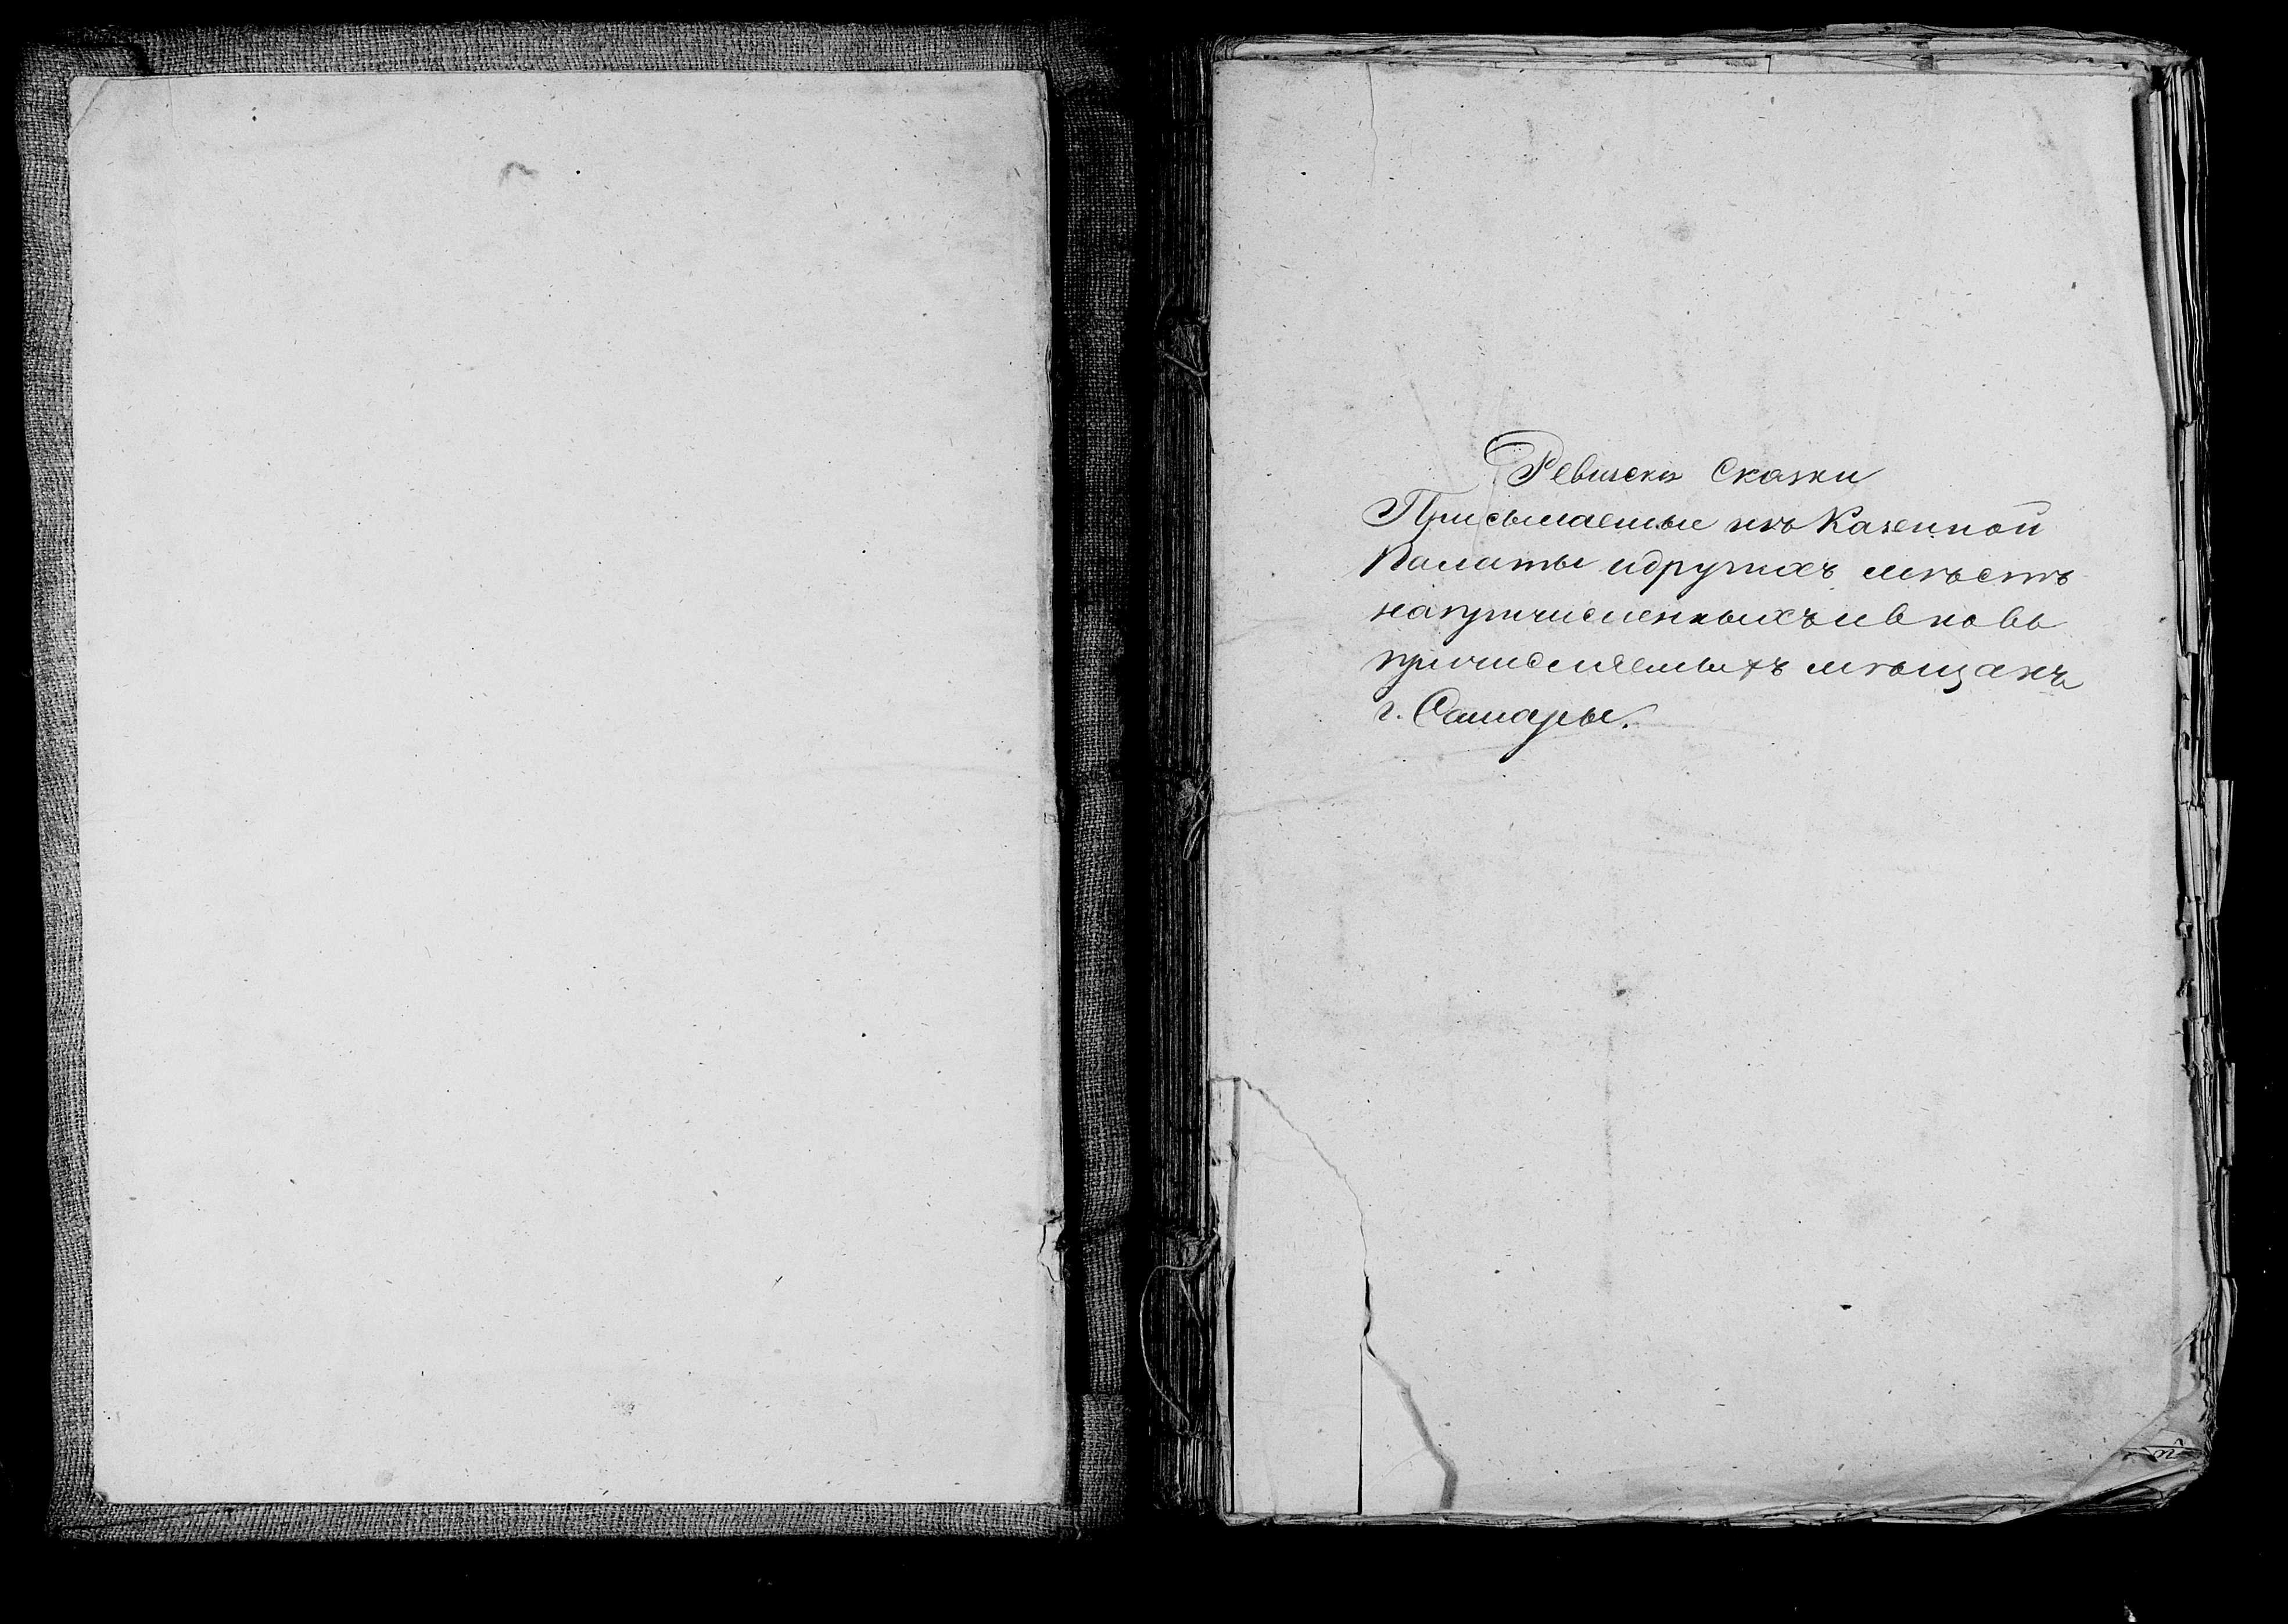 Ревизски Сказки
Присылаемыи изъ Казенной
Палаты и другихъ мѣстъ
на причисленныхъ и вновь
причисляемыхъ мѣщанъ
г. Самары.